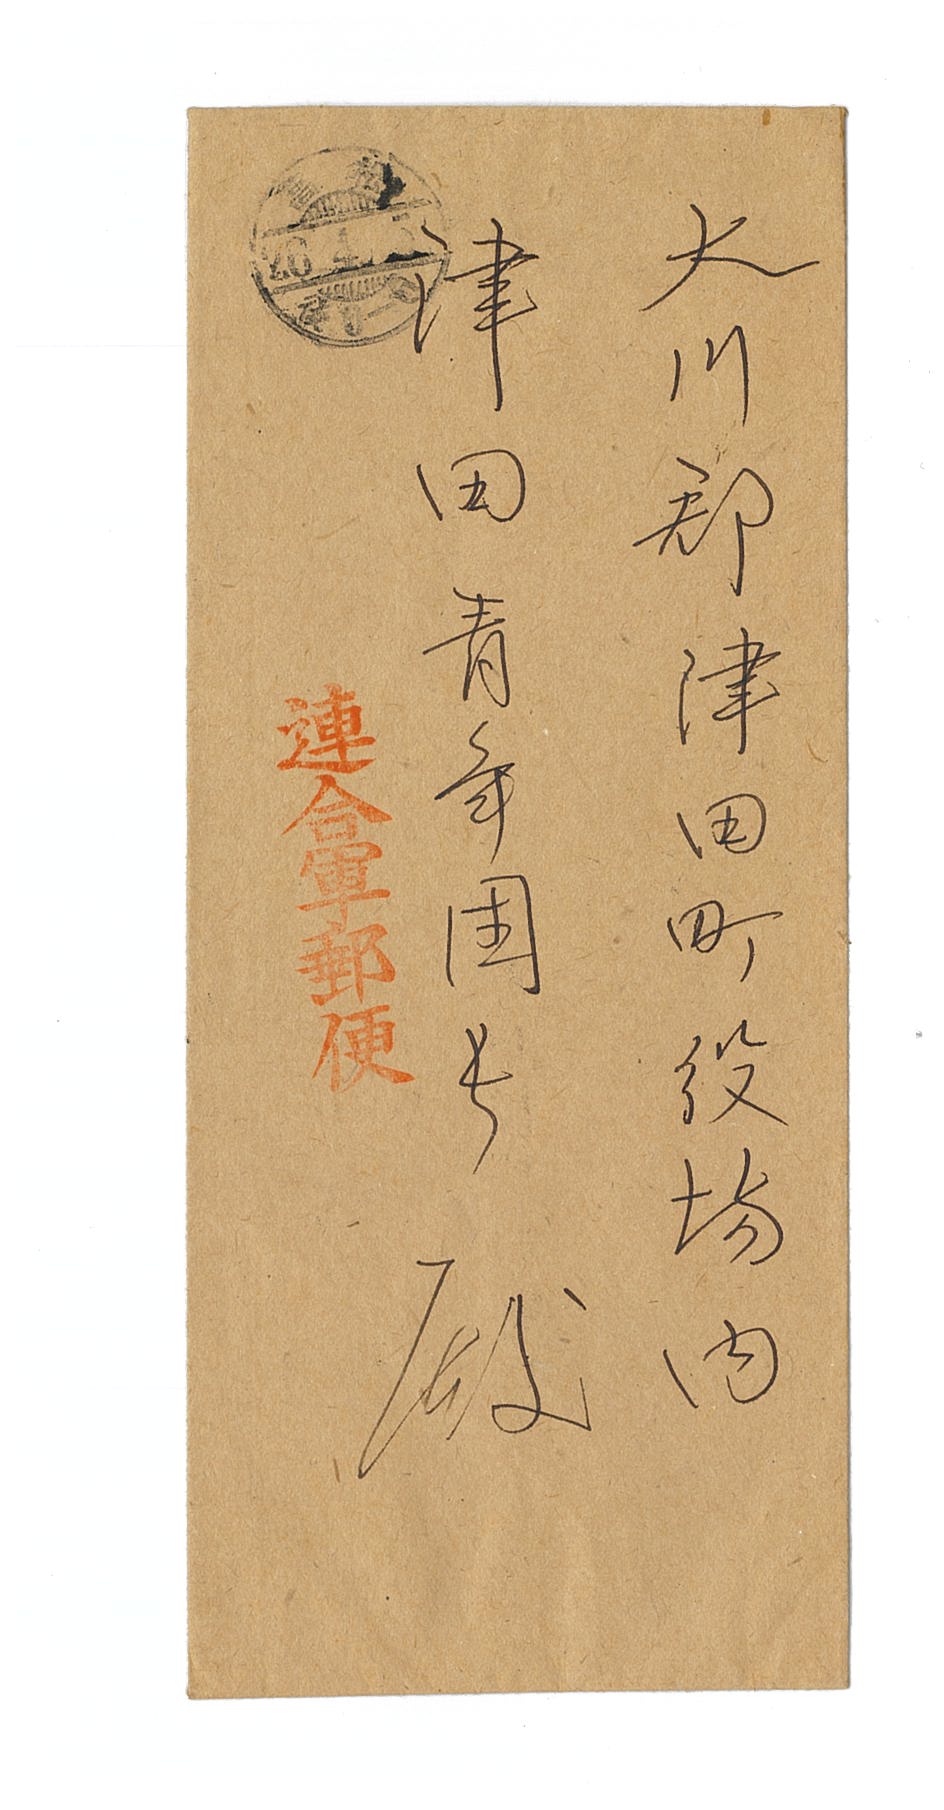 大川郡津田町役場内
津田青年団長 殿
連合軍郵便
26.4.